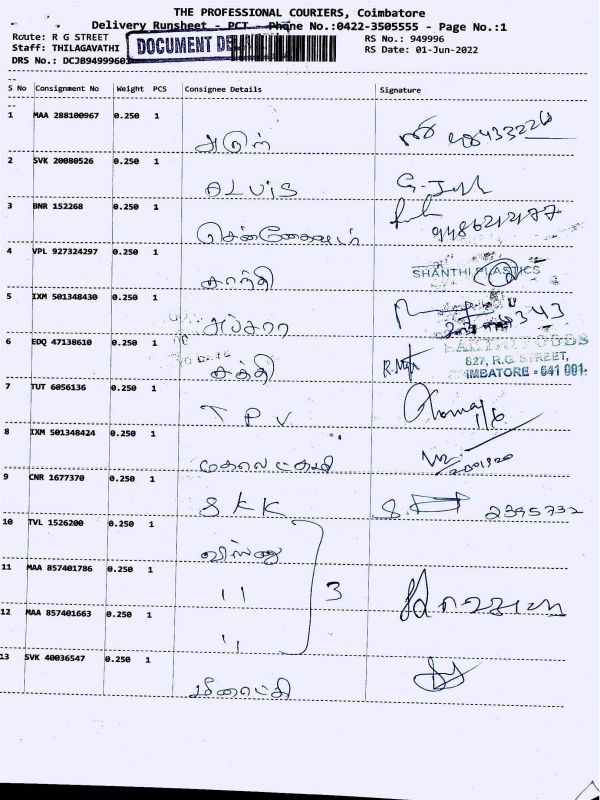 THE PROFESSIONAL COURIERS, Coimbatore
Delivery Runsheet - PCT - Phone No.:0422-3505555 - Page No.:1
Route: R G STREET RS No.: 949996
Staff: THILAGAVATHI DOCUMENT RS Date: 01-Jun-2022
DRS No.: DCJB9499960
S No Consignment No Weight PCS Consignee Details Signature
1 MAA 288100967 0.250 1
அருள்
2 SVK 20080526 0.250 1
ALVIS
3 BNR 152268 0.250 1
4 VPL 927324297 0.250 1
சாந்தி SHANTHI PLASTICS
5 IXM 501348430 0.250 1
அப்சரா
6 EDQ 47138610 0.250 1
சக்தி 627, R.G. STREET,
COIMBATORE - 641 001.
7 TUT 6056136 0.250 1
T P V
8 IXM 501348424 0.250 1
மகாலட்சுமி
9 CNR 1677370 0.250 1
S K K 2395732
10 TVL 1526200 0.250 1
விஸ்ணு
11 MAA 857401786 0.250 1
" 3
12 MAA 857401663 0.250 1
"
13 SVK 40036547 0.250 1
மீனாட்சி